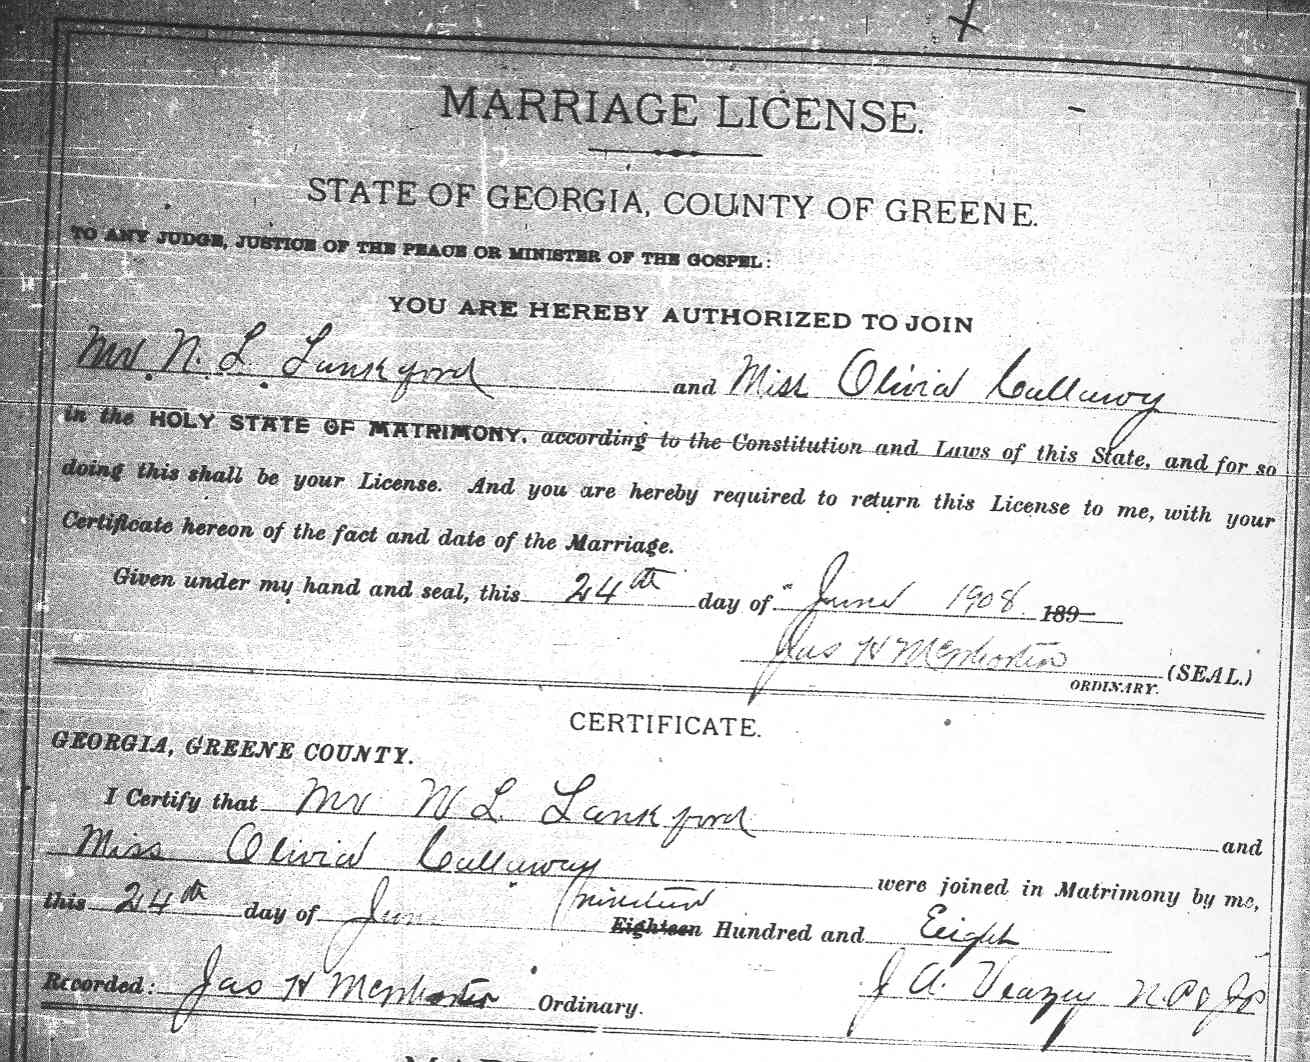 MARRIAGE LICENSE.
STATE OF GEORGIA, COUNTY OF GREENE.
TO ANY JUDGE, JUSTICE OF THE PEACE OR MINISTER OF THE GOSPEL:
YOU ARE HEREBY AUTHORIZED TO JOIN
Mr. N. L. Lankford and Miss Olivia Callaway
in the HOLY STATE OF MATRIMONY, according to the Constitution and Laws of this State, and for so
doing this shall be your License. And you are hereby required to return this License to me, with your
Certificate hereon of the fact and date of the Marriage.
Given under my hand and seal, this 24th day of June 1908 189
Jas H McWhorter (SEAL.)
ORDINARY.
CERTIFICATE.
GEORGIA, GREENE COUNTY.
I Certify that Mr N L Lankford and
Miss Olivia Callaway were joined in Matrimony by me,
this 24th day of June nineteen Eighteen Hundred and Eight
Recorded: Jas H McWhorter Ordinary. J A Veazey N.P. & JP